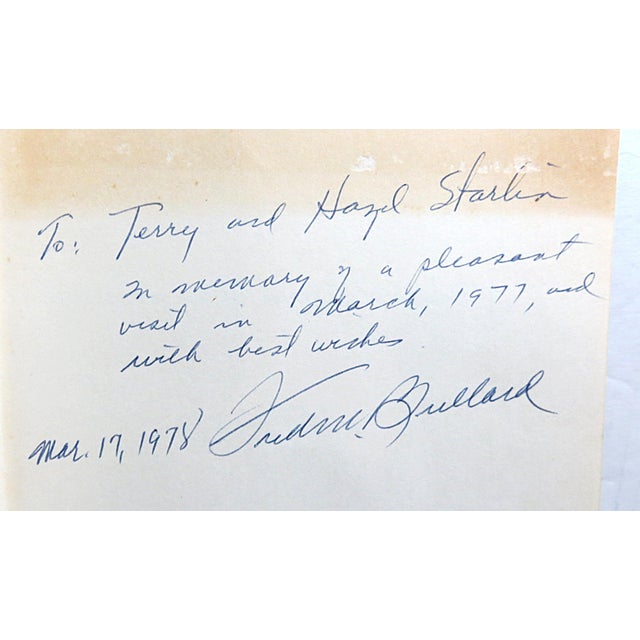 To: Terry and Hazel Starlin
In memory of a pleasant
visit in March, 1977, and
with best wishes
Mar. 17, 1978 Fred M. Bullard